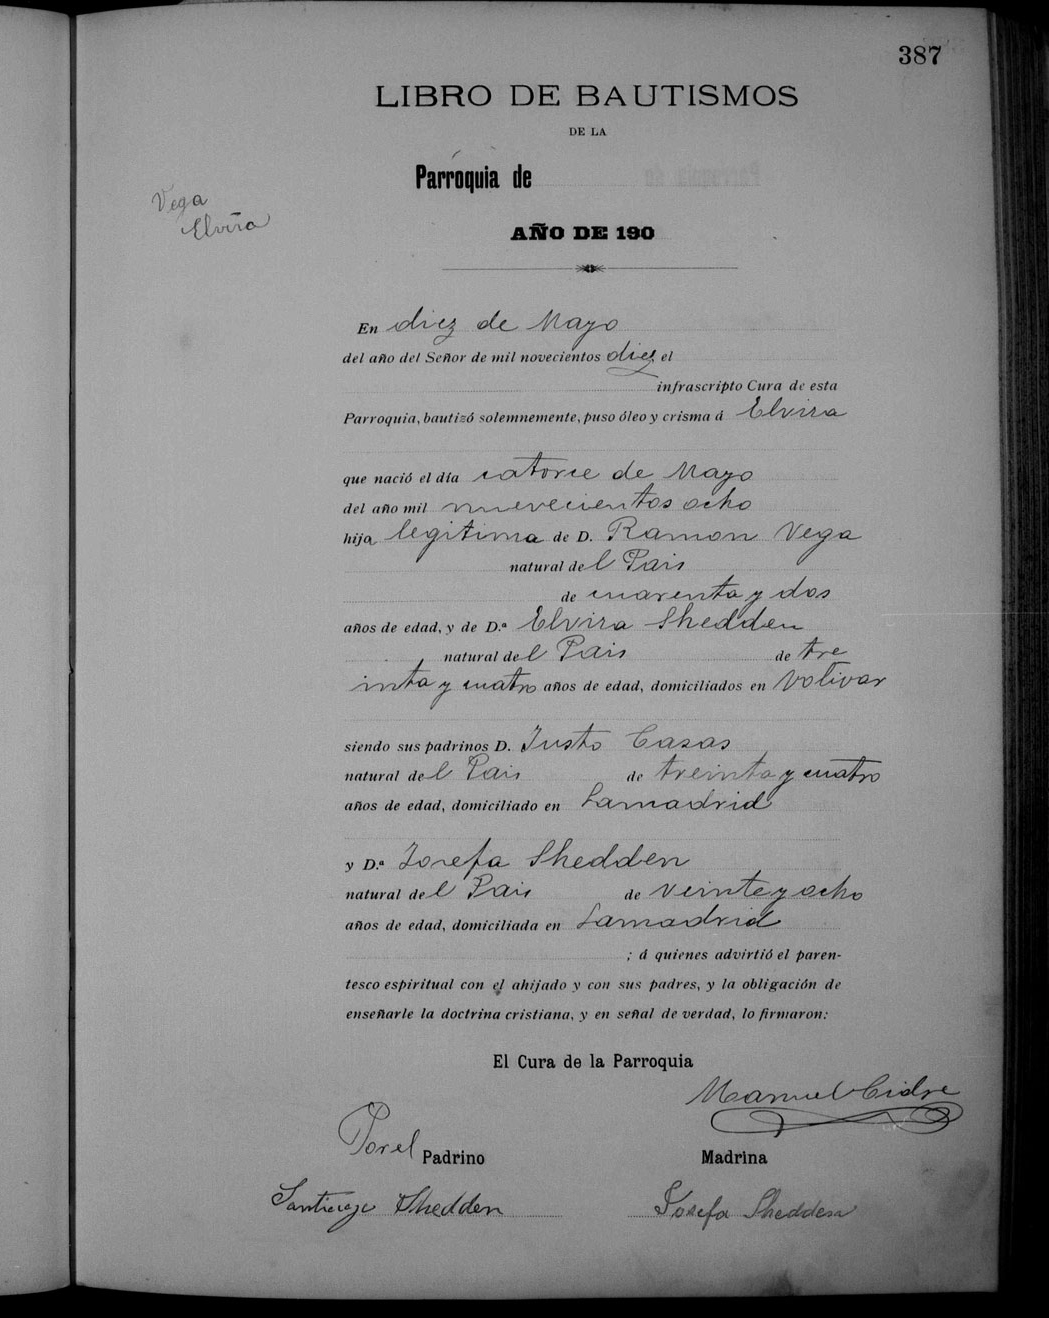 387
LIBRO DE BAUTISMOS
DE LA
Parroquia de
Vega
Elvira
AÑO DE 190
En diez de Mayo
del año del Señor de mil novecientos diez el
infrascripto Cura de esta
Parroquia, bautizó solemnemente, puso óleo y crisma á Elvira
que nació el día catorce de Mayo
del año mil nuevecientos ocho
hija legitima de D. Ramon Vega
natural del Pais
de cuarenta y dos
años de edad, y de D.ª Elvira Shedden
natural del Pais de tre
inta y cuatro años de edad, domiciliados en Volivar
siendo sus padrinos D. Justo Casas
natural del Pais de treinta y cuatro
años de edad, domiciliado en Lamadrid
y D.ª Josefa Shedden
natural del Pais de veinte y ocho
años de edad, domiciliada en Lamadrid
; á quienes advirtió el paren-
tesco espiritual con el ahijado y con sus padres, y la obligación de
enseñarle la doctrina cristiana, y en señal de verdad, lo firmaron:
El Cura de la Parroquia
Manuel Cidre
Por el Padrino Madrina
Santiago Shedden Josefa Shedden